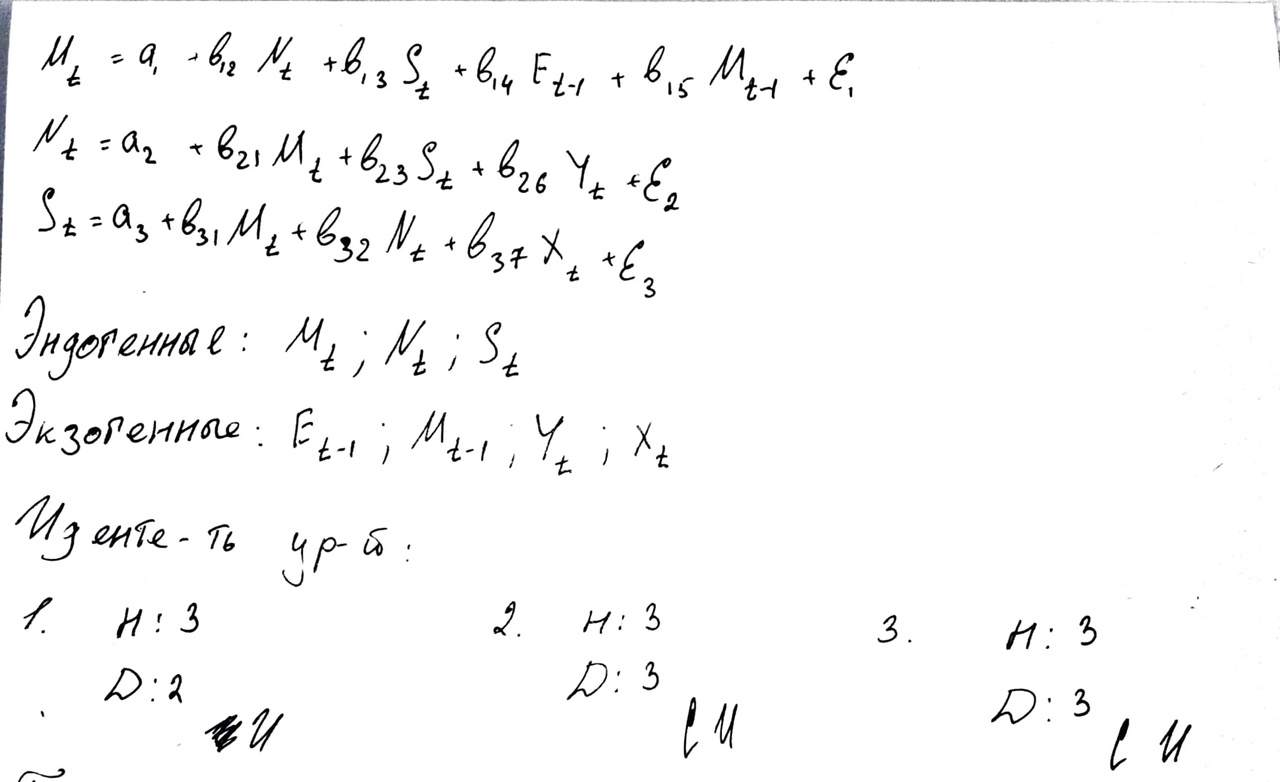 M_t = a_1 + b_12 N_t + b_13 S_t + b_14 E_t-1 + b_15 M_t-1 + ε_1
N_t = a_2 + b_21 M_t + b_23 S_t + b_26 Y_t + ε_2
S_t = a_3 + b_31 M_t + b_32 N_t + b_37 X_t + ε_3
Эндогенные: M_t ; N_t ; S_t
Экзогенные: E_t-1 ; M_t-1 ; Y_t ; X_t
ур-й:
1. H: 3 2. H: 3 3. H: 3
D: 2 D: 3 D: 3
И СИ СИ